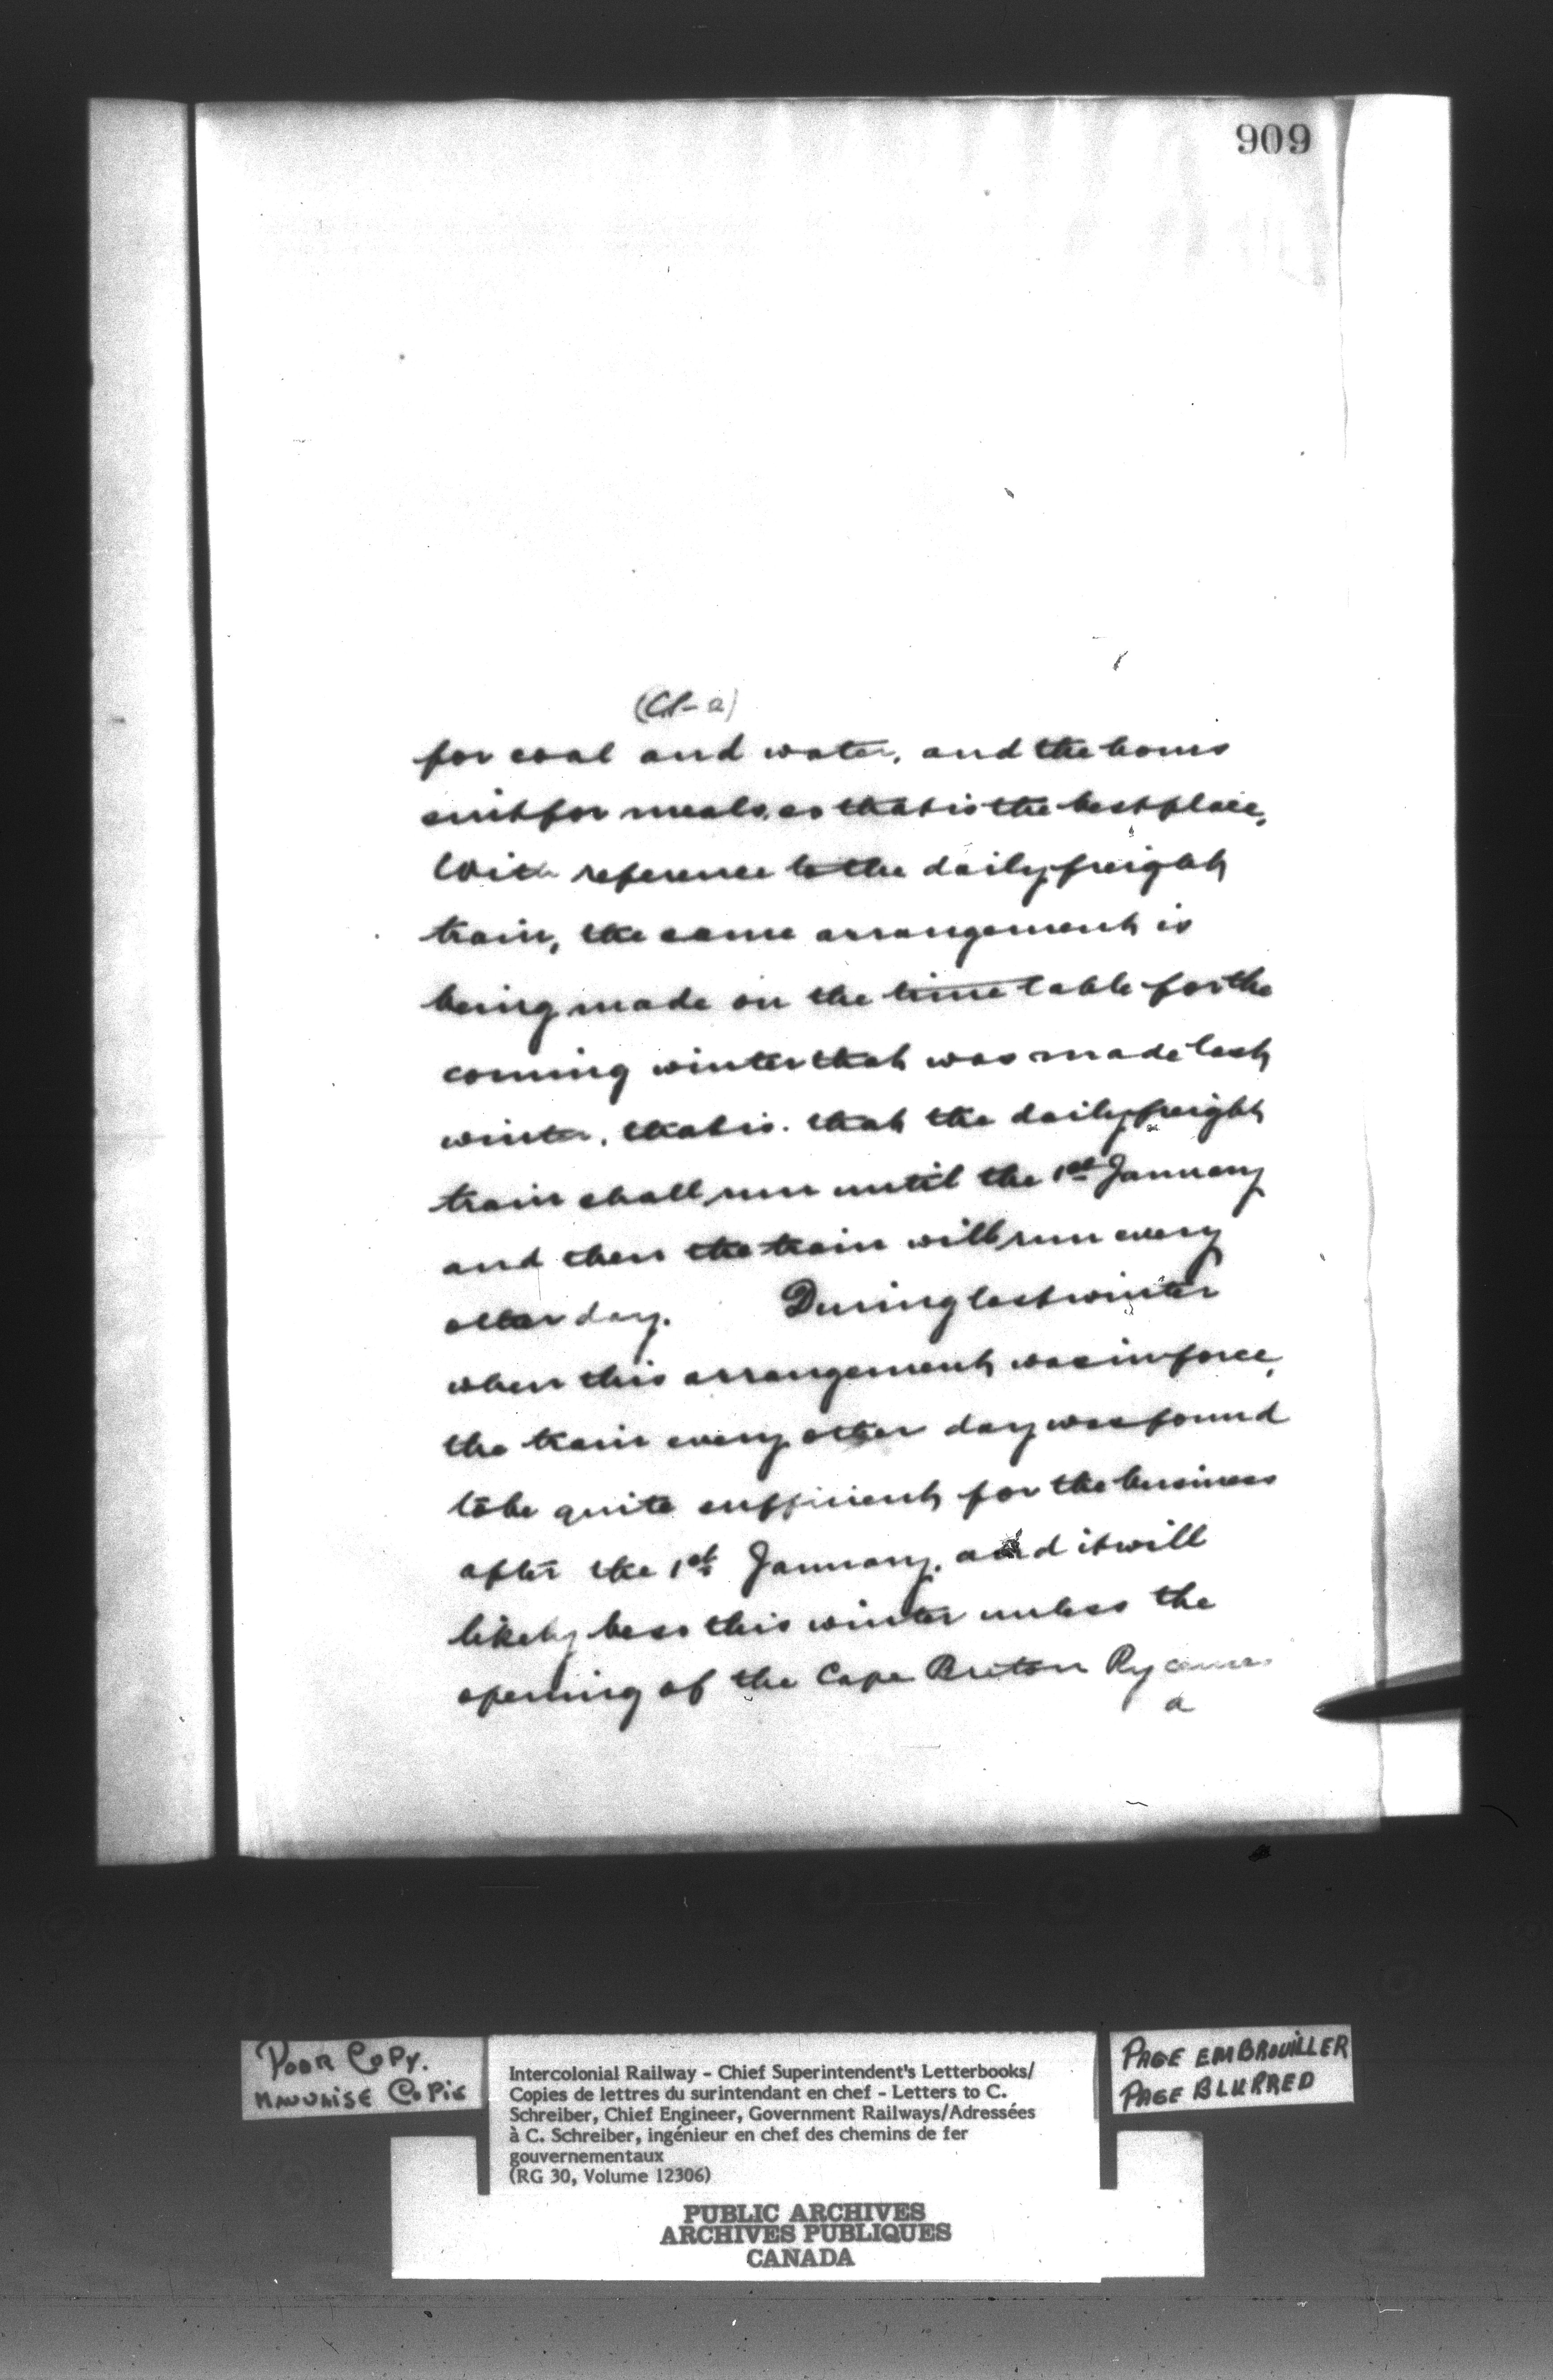 909
for coal and water, and the hours
suit for meals, as that is the best place,
With reference to the daily freight
train, the same arrangement is
being made on the time table for the
coming winter that was made last
winter, that is. that the daily freight
train shall run until the 1st January
and then the train will run every
other day. During last winter
when this arrangement was in force,
the train every other day was found
to be quite sufficient for the business
after the 1st January, and it will
likely be so this winter unless the
opening of the Cape Breton Ry
a
POOR COPY.
MAUVAISE COPIE
Intercolonial Railway - Chief Superintendent's Letterbooks/
Copies de lettres du surintendant en chef - Letters to C.
Schreiber, Chief Engineer, Government Railways/Adressées
à C. Schreiber, ingénieur en chef des chemins de fer
gouvernementaux
(RG 30, Volume 12306)
PAGE EMBROUILLER
PAGE BLURRED
PUBLIC ARCHIVES
ARCHIVES PUBLIQUES
CANADA